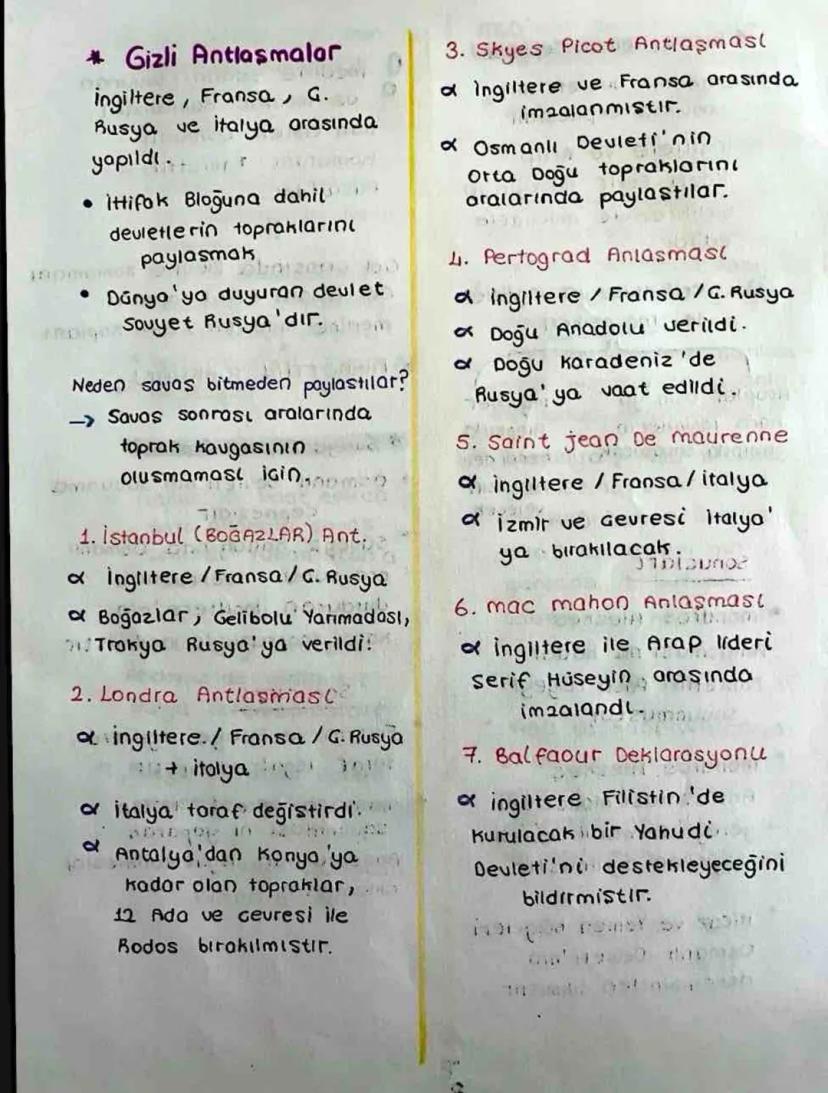 * Gizli Antlaşmalar
İngiltere, Fransa, Ç.
Rusya ve İtalya arasında
yapıldı.
• İttifak Bloğuna dahil
devletlerin topraklarını
paylaşmak
• Dünya'ya duyuran devlet
Sovyet Rusya'dır.
Neden savaş bitmeden paylaştılar?
→ Savaş sonrası aralarında
toprak kavgasının
oluşmaması için.
1. İstanbul (BOĞAZLAR) Ant.
α İngiltere / Fransa / Ç. Rusya
α Boğazlar, Gelibolu Yarımadası,
Trakya Rusya'ya verildi.
2. Londra Antlaşması
α ingiltere / Fransa / Ç. Rusya
+ italya
α İtalya taraf değiştirdi.
α Antalya'dan Konya'ya
kadar olan topraklar,
12 Ada ve çevresi ile
Rodos bırakılmıştır.
3. Skyes Picot Antlaşması
α İngiltere ve Fransa arasında
imzalanmıştır.
α Osmanlı Devleti'nin
Orta Doğu topraklarını
aralarında paylaştılar.
4. Pertograd Anlaşması
α İngiltere / Fransa / Ç. Rusya
α Doğu Anadolu verildi.
α Doğu Karadeniz'de
Rusya'ya vaat edildi.
5. Saint jean De maurenne
α ingiltere / Fransa / italya
α İzmir ve çevresi İtalya'
ya bırakılacak.
6. mac mahon Anlaşması
α ingiltere ile Arap lideri
Şerif Hüseyin arasında
imzalandı.
7. Balfaour Deklarasyonu
α ingiltere Filistin'de
kurulacak bir Yahudi
Devleti'ni destekleyeceğini
bildirmiştir.